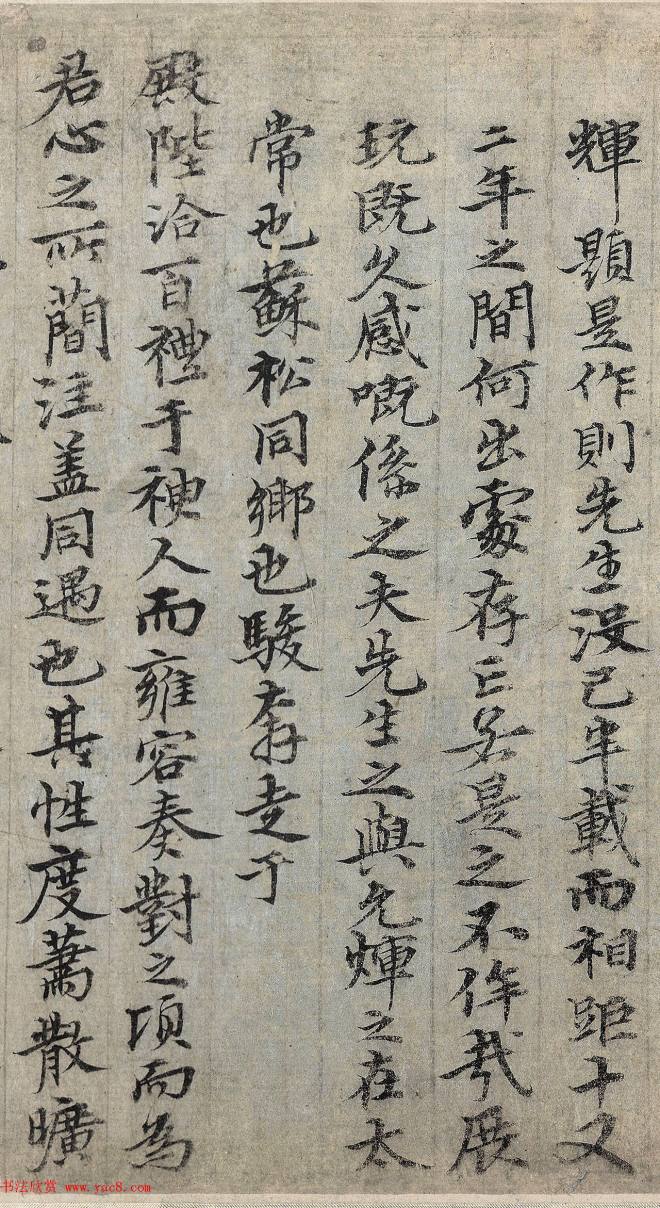 輝題是作則先生沒已半載而相距十又
二年之間何出處存亡若是之不侔哉展
玩既久感嘅係之夫先生之與允煇之在太
常也蘇松同鄉也駿奔走于
殿陛洽百禮于神人而雍容奏對之頃而為
君心之所蕳注盖同遇也其性度蕭散曠
书法欣赏 www.yac8.com